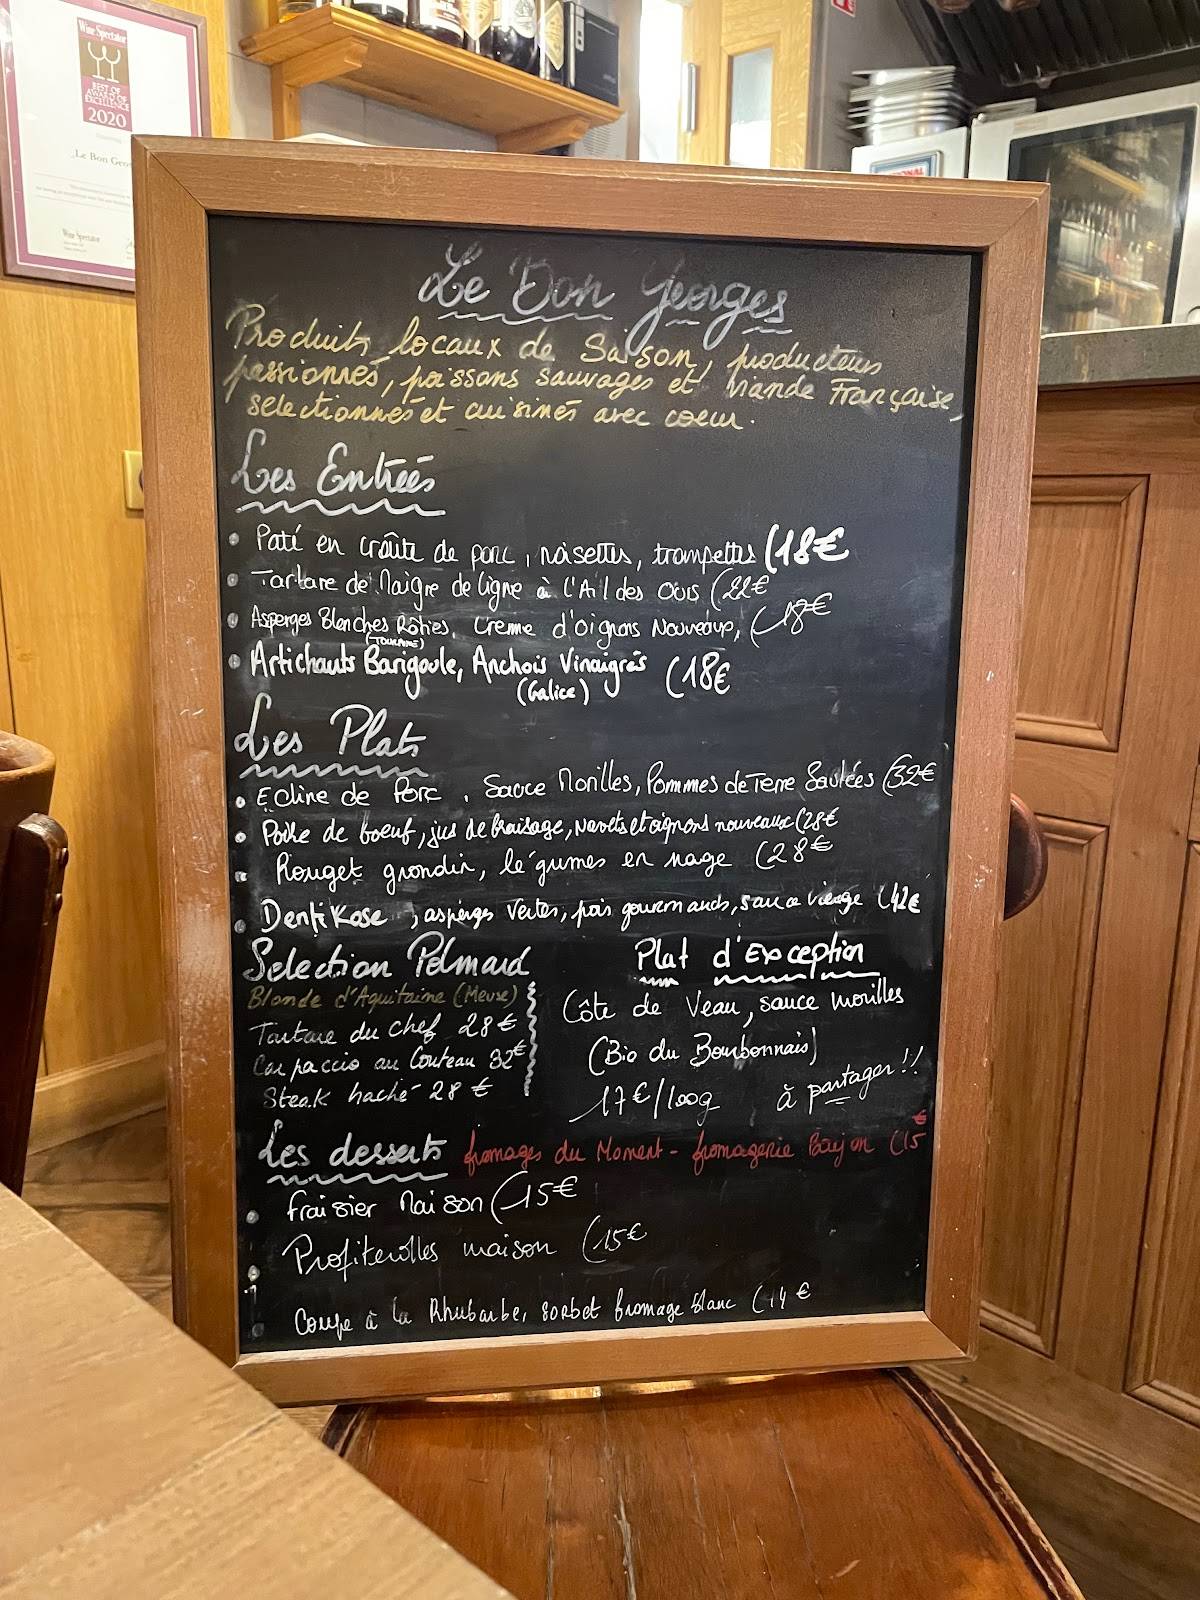 Wine Spectator
BEST OF
AWARD OF
EXCELLENCE
2020
Le Bon Geor
Wine Spectator
Le Bon Georges
Produits locaux de Saison, producteurs
passionnés, poissons sauvages et viande Française,
selectionnés et cuisinés avec coeur.
Les Entrées
• Paté en croûte de porc, noisettes, trompettes (18€
• Tartare de Maigre de ligne à l'Ail des Ours (22€
• Asperges Blanches Rôties, Creme d'oignons Nouveaux, (18€
(TOURAINE)
• Artichauts Barigoule, Anchois Vinaigrés (18€
(Galice)
Les Plats
• Echine de Porc, Sauce Morilles, Pommes de Terre Sautées (32€
• Poire de boeuf, jus de braisage, navets et oignons nouveaux (28€
• Rouget grondin, légumes en nage (28€
• Denti Rose, asperges vertes, pois gourmands, sauce vierge (42€
Selection Polmard
Blonde d'Aquitaine (Meuse)
Tartare du chef 28€
Carpaccio au Couteau 32€
Steak haché 28€
Plat d'Exception
Côte de Veau, sauce morilles
(Bio du Bourbonnais)
17€/100g à partager!!
Les desserts fromages du Moment - fromagerie (15€
• Fraisier Maison (15€
• Profiterolles maison (15€
Coupe à la Rhubarbe, sorbet fromage blanc (14€